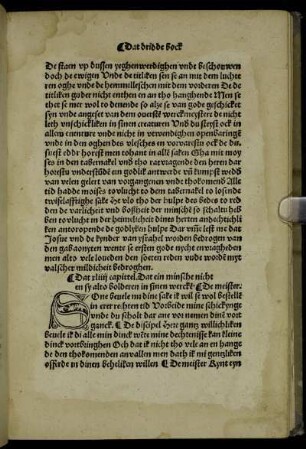 Dat drüdde bock
De staen vp dussen yeghenwerdighen vnde beschouwen
doch de ewigen Vnde de titliken sen se an mit dem luchter
ren oghe vnde de hemmelleschen mit dem vorderen De de
titliken gader nicht enthen en an tho hanghende Men se
thet se mer wol to denende so alze se van gode geschicket
syn vnde angeset van dem ouersten werckmeystere de nicht
leth vnschicklikes in sinen creaturen Vnde du steyst ock in
allen euenture vnde nicht in vtwendighen openbaringe
vnde in den oghen des vlesches en vorwarest ock de da
suluest edder horest men tohant in aller saken Gha mit moy
ses in den tabernakel vnde tho ratvragende den heren dar
horestu vnderstunde en godlik antwerde vnde kumpst wedder
van velen geleret van vorgangenen vnde thokomende Alle
tid hadde moises tovlucht to dem tabernakel to losende
twiuelafftighe sake He vlo tho der hulpe des bedes to red
den de varlicheit vnd bosheit der minschen so schaltu
ken to vlucht in der heimlicheit dines herten andachtichliken
antoropende de godliken hulpe Dar vmme lest me dat
Josue vnd de kynder van ysrahel worden bedroghen van
den gabaoniten wente se ersten gode nicht en vragheden
men alto vele loueden den soten reden vnde worden myt
valscher mildicheit bedroghen.
Dat xliiij capittel. Dat ein minsche nicht
en sy alto bolderen in sinen wercken De meister.
SOne beuele mi dine sake ik wil se wol bestellen
in erer rechten tid Vorbeide mine schickynge
vnde du scholt dar ane vornemen dinen vort
ganck. De discipel Here gans willichliken
beuele ik di alle min dinck wente mine dechtenisse kan kleine
dinck vortbringhen Och dat ik nicht tho vele an en hange
den thokomenden anvallen men dath ik mi gentzliken
offerde in dinen behechliken willen De meister Kynt eyn